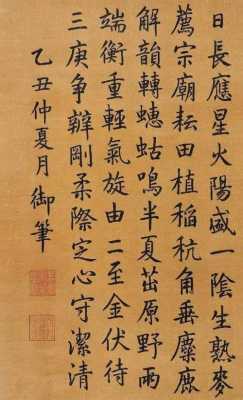 日長應星火陽盛一陰生熟麥
薦宗廟耘田植稻秔角垂麋鹿
解韻轉蟪蛄鳴半夏茁原野兩
端衡重輕氣旋由二至金伏待
三庚爭辯剛柔際定心守潔清
乙丑仲夏月御筆